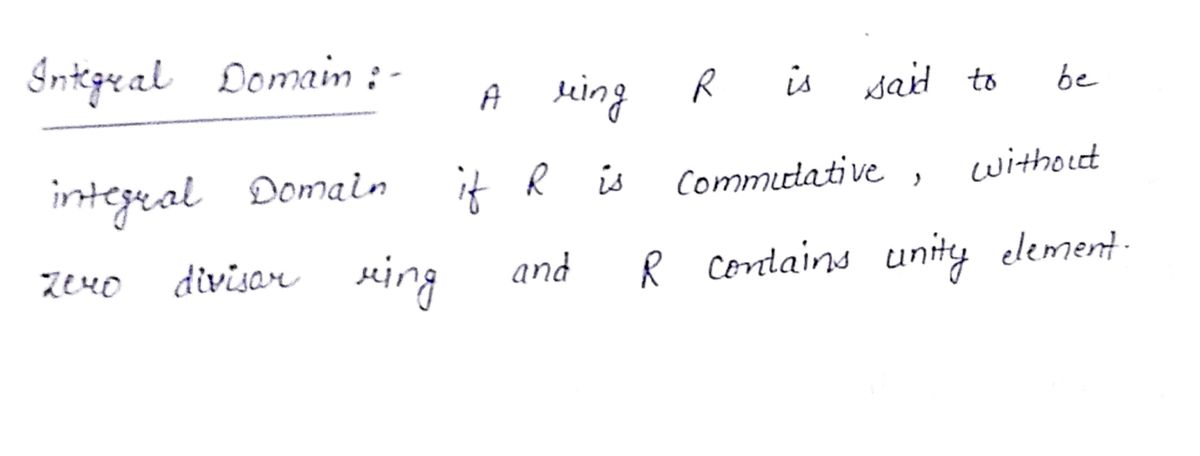 Integral Domain :- A ring R is said to be
integral Domain if R is Commutative, without
zero divisar ring and R Contains unity element.